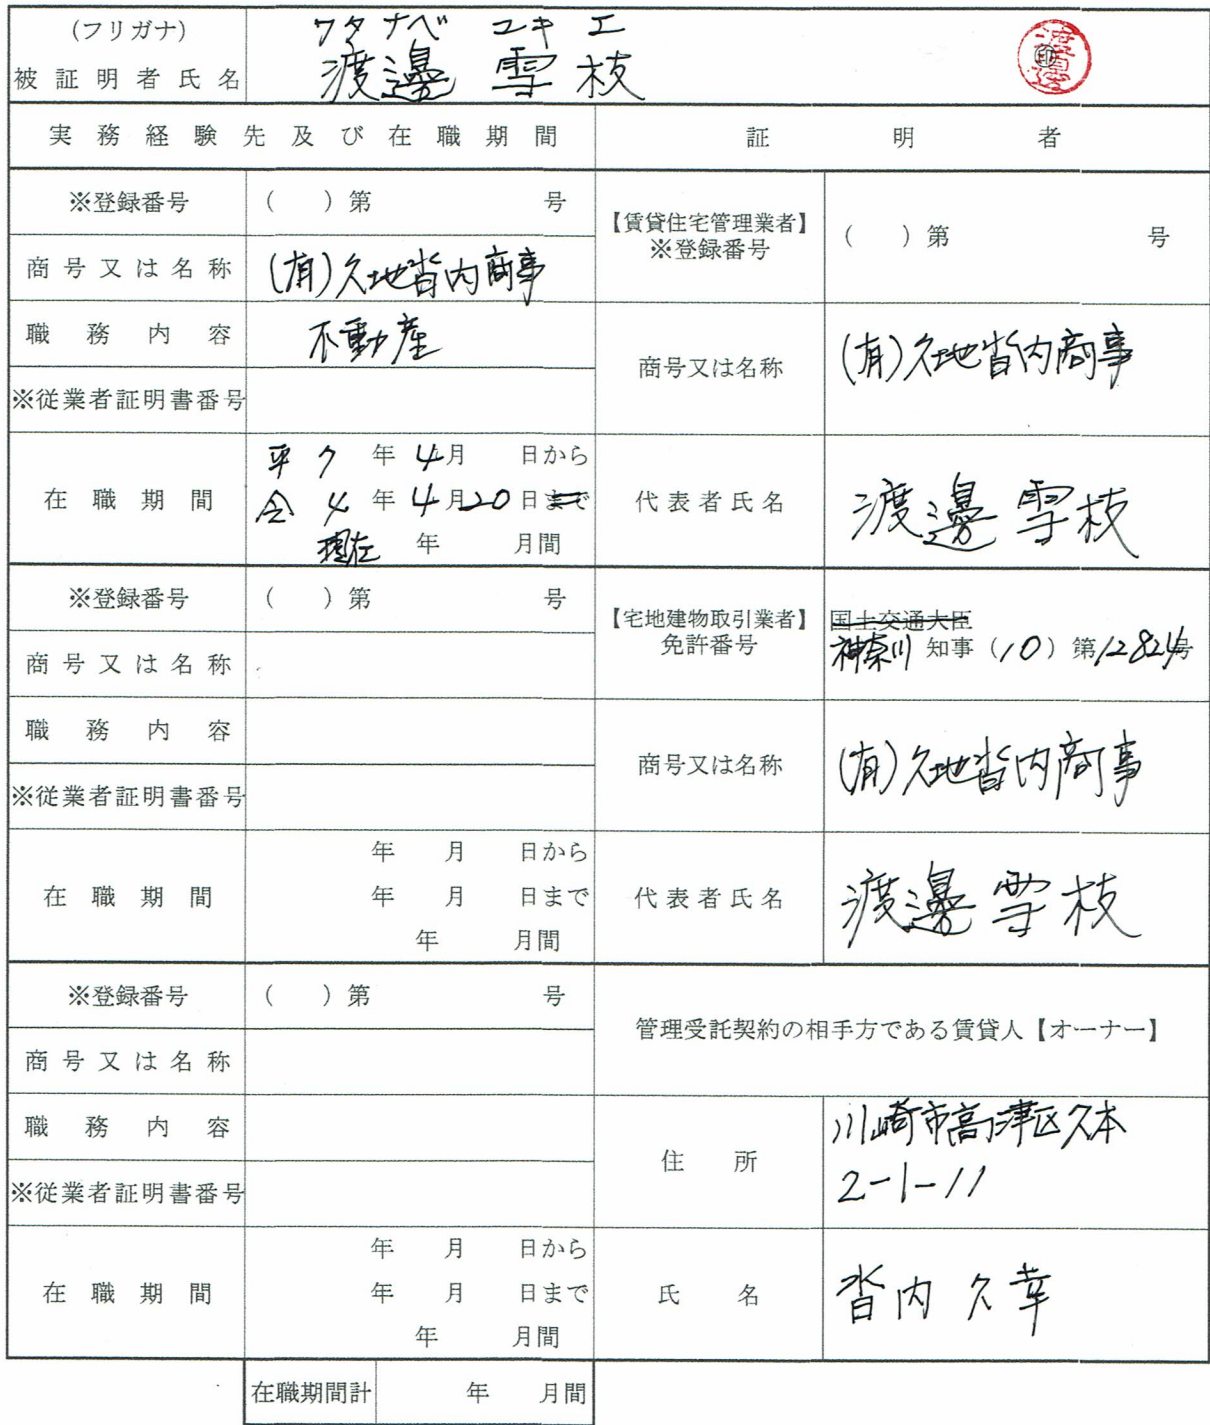 (フリガナ) ワタナベ ユキエ
被証明者氏名 渡邊 雪枝 ㊞
実務経験先及び在職期間
証明者
※登録番号 ( )第 号
商号又は名称 (有)久地沓内商事
職務内容 不動産
※従業者証明書番号
在職期間
平 7 年 4月 日から
令 4 年 4月20日まで
現在 年 月間
【賃貸住宅管理業者】
※登録番号
( )第 号
商号又は名称 (有)久地沓内商事
代表者氏名 渡邊 雪枝
※登録番号 ( )第 号
商号又は名称
職務内容
※従業者証明書番号
在職期間
年 月 日から
年 月 日まで
年 月間
【宅地建物取引業者】
免許番号
国土交通大臣
神奈川 知事(10)第12824号
商号又は名称 (有)久地沓内商事
代表者氏名 渡邊 雪枝
※登録番号 ( )第 号
商号又は名称
職務内容
※従業者証明書番号
在職期間
年 月 日から
年 月 日まで
年 月間
管理受託契約の相手方である賃貸人【オーナー】
住所
川崎市高津区久本
2-1-11
氏名 沓内 久幸
在職期間計 年 月間